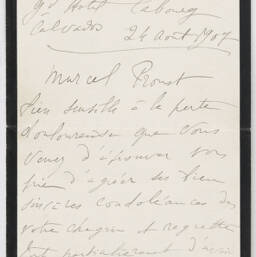 Gd Hotel Cabourg
Calvados 24 Août 1907
Marcel Proust
bien sensible à la perte
douloureuse que vous
venez d'éprouver vous
prie d'agréer ses bien
sincères condoléances
votre chagrin et regrette
tout particulièrement d'avoir